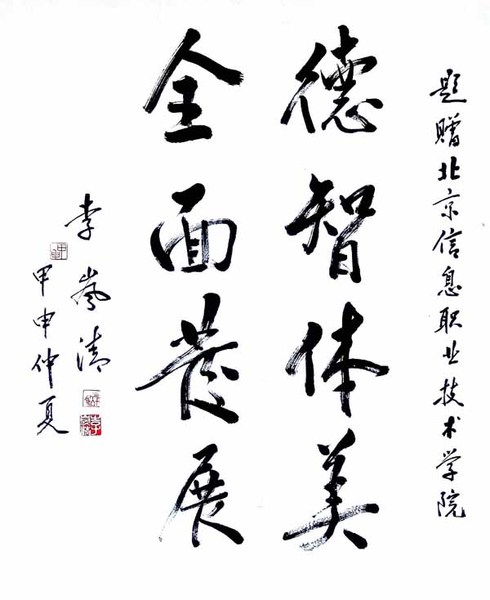 题赠北京信息职业技术学院
德智体美
全面发展
李岚清
甲申仲夏